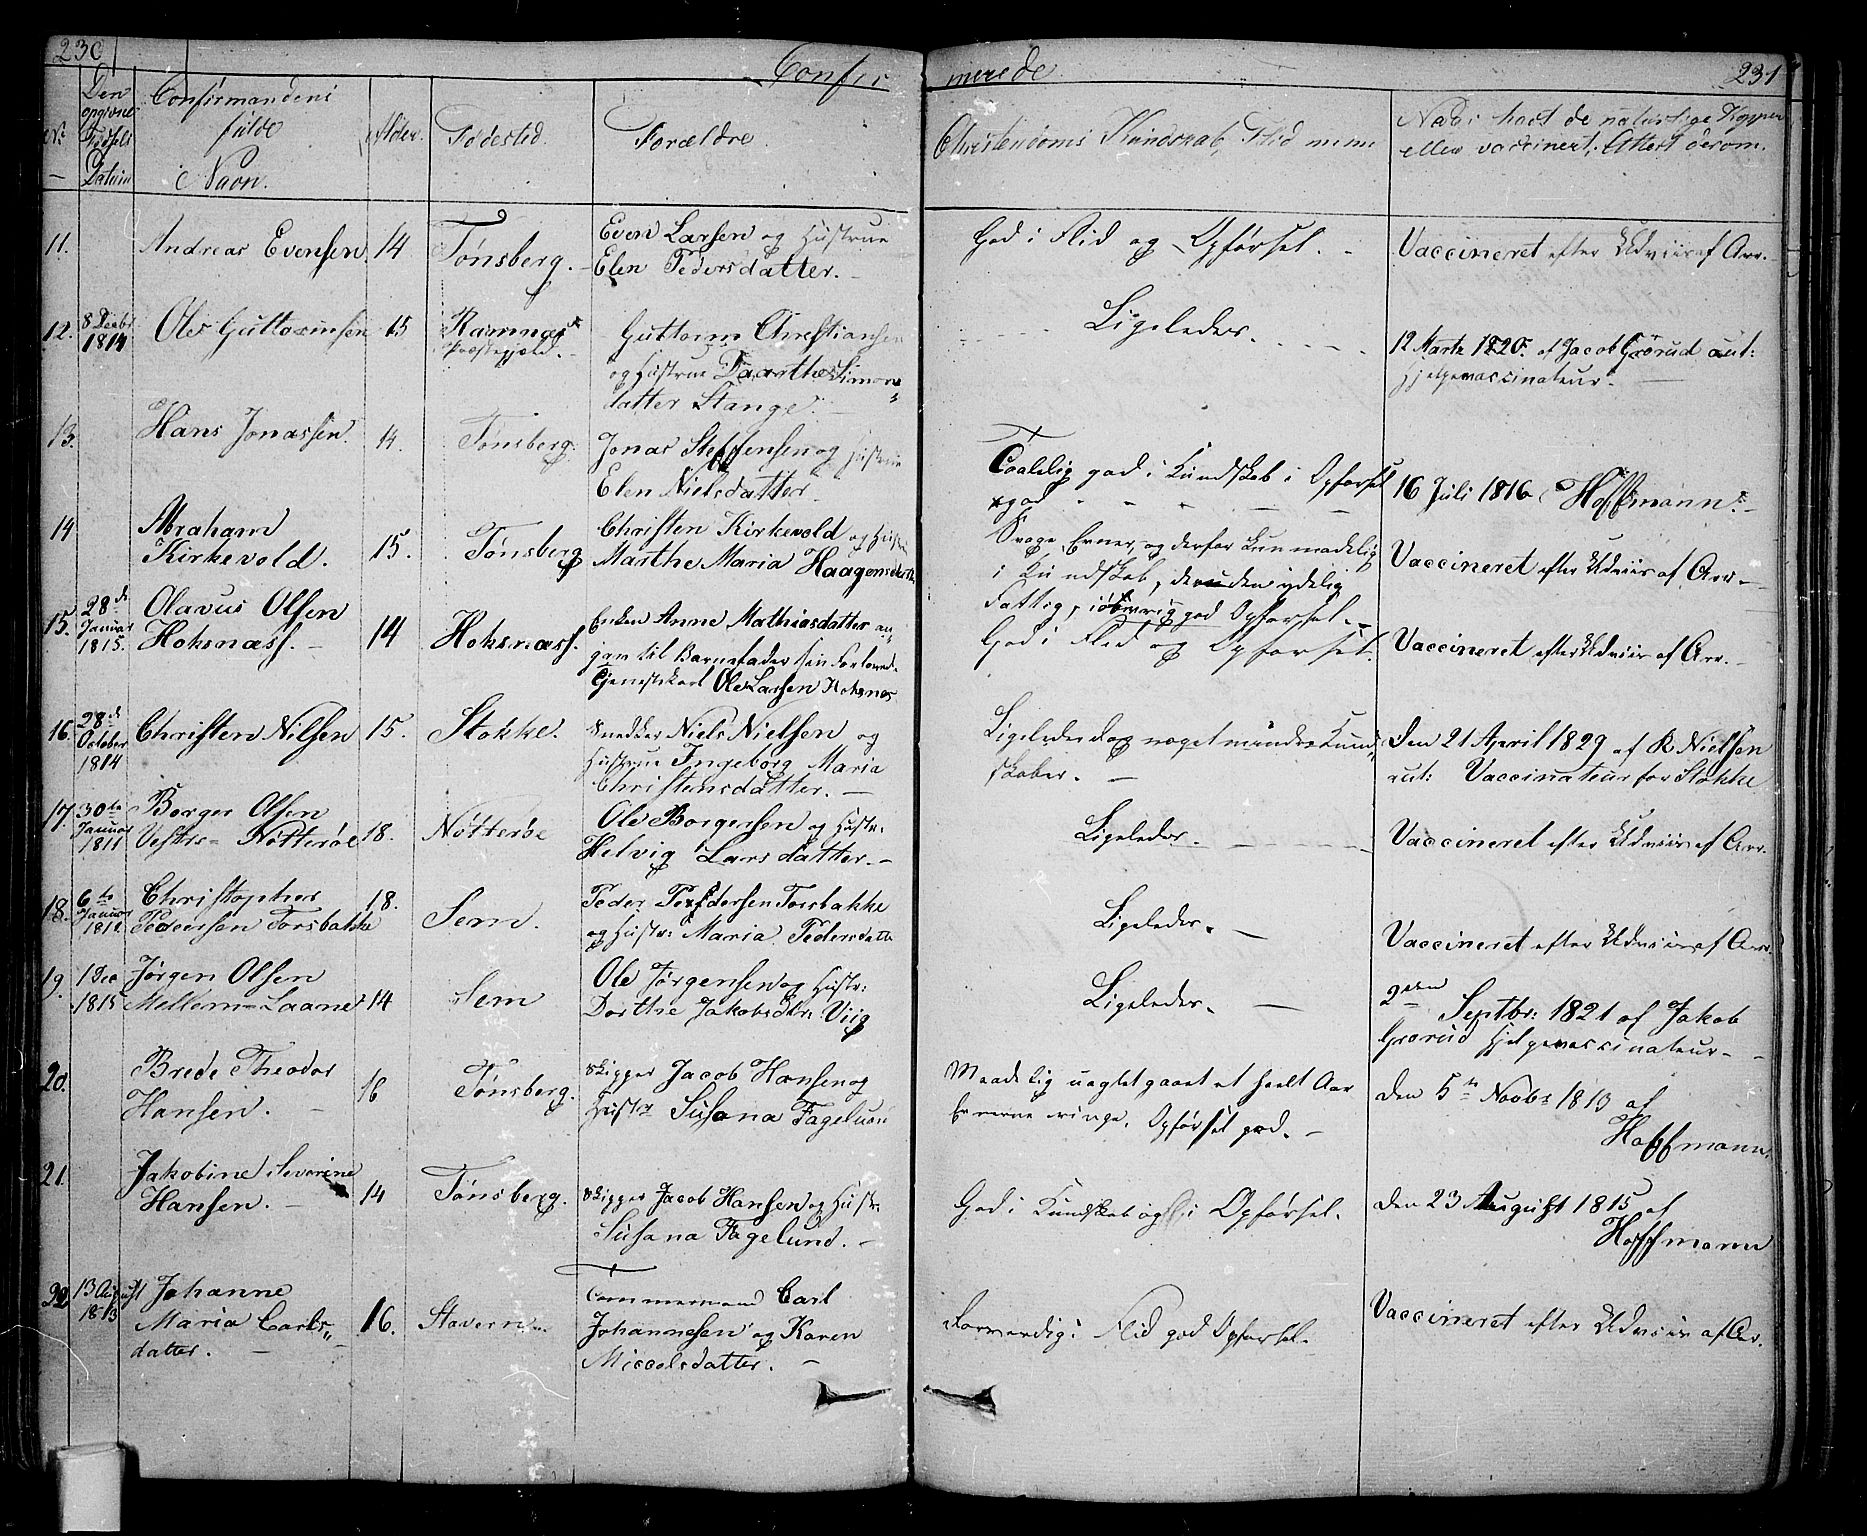 230
Confir
merede
231
No
Den opgivne Fødsels Datum
Confirmandens fulde Navn.
Alder.
Fødested.
Forældre.
Christendoms Kundskab, Flid
Naar havt de naturlige Kopper
eller vaccineret, Attest derom.
11.
Andreas Evensen
14
Tønsberg.
Even Larsen og Hustrue
Elen Pedersdatter.
God i Flid og Opførsel.
Vaccineret efter Udviis af Arv.
12.
8 Decbr
1814
Ole Guttormsen
15
Ramnæs
Præstegjæld.
Guttorm Christiansen
og Hustrue Daarthe Simons
datter Stange.
Ligeledes.
12 Martz 1820. af Jacob Grørud aut:
Hjelpevaccinateur.
13.
Hans Jonassen.
14.
Tønsberg.
Jonas Steffensen og Hustrue
Elen Nielsdatter.
Taalelig god i Kundskab i Opførsel
god
16 Juli 1816 Hoffmann.
14
Abraham
Kirkevold.
15.
Tønsberg
Christen Kirkevold og Hustr
Marthe Maria Haagensdatter
Svage Evner, og derfor kun maadelig
i Kundskab, desuden ydelig
Fattig, iøvrig god Opførsel.
Vaccineret efter Udviis af Arv.
15.
28de
Januar
1815.
Olavus Olsen
Hoksnæss.
14
Hoksnæss.
Enken Anne Mathiasdatter an
gav til Barnefader sin Forlovede
Tjenestekarl Ole Larsen Hoksnæs
God i Flid og Opførsel.
Vaccineret efter Udviis af Arv.
16.
28de
October
1814
Christen Nilsen
15.
Stokke.
Snedker Niels Nielsen og
Hustrue Ingeborg Maria
Christensdatter.
Ligeledes dog noget mindre Kund
skaber.
Den 21 April 1829 af R Nielsen
aut: Vaccinateur for Stokke
17.
30te
Januar
1811
Borger Olsen
Vestre= Nøtterøe
18.
Nøtterøe
Ole Borgersen og Hustr:
Helvig Larsdatter.
Ligeledes.
Vaccineret efter Udviis af Arv.
18.
6te
Januar
1812
Christopher
Pedersen Torsbakke
18.
Sem.
Peder Pedersen Torsbakke
og Hustr: Maria Pedersdatte
Ligeledes.
Vaccineret efter Udviis af Arv.
19.
1 Dec
1815
Jørgen Olsen
Mellem=Laane
14
Sem
Ole Jørgensen og Hustr:
Dorthe Jakobsdtr: Viig
Ligeledes.
2den
Septbr: 1821 af Jakob
Grørud Hjelpevaccinateur.
20.
Brede Theodor
Hansen.
16
Tønsberg.
Skipper Jacob Hansen og
Hustr Susana Fagelund
Maadelig uagtet gaaet et heelt Aar
Evnerne ringe. Opførsel god.
Den 5te Novbr 1813 af
Hoffmann.
21.
Jakobine Severine
Hansen.
14
Tønsberg.
Skipper Jacob Hansen og Hustr.
Susana Fagelund.
God i Kundskab og i Opførsel.
Den 23 August 1815 af
Hoffmann
22
13 August
1813
Johanne
Maria Carls
datter.
16.
Stavern.
Tømmermand Carl
Johannesen og Karen
Miccelsdatter.
Forsvarlig i Flid god Opførsel.
Vaccineret efter Udviis af Arv.